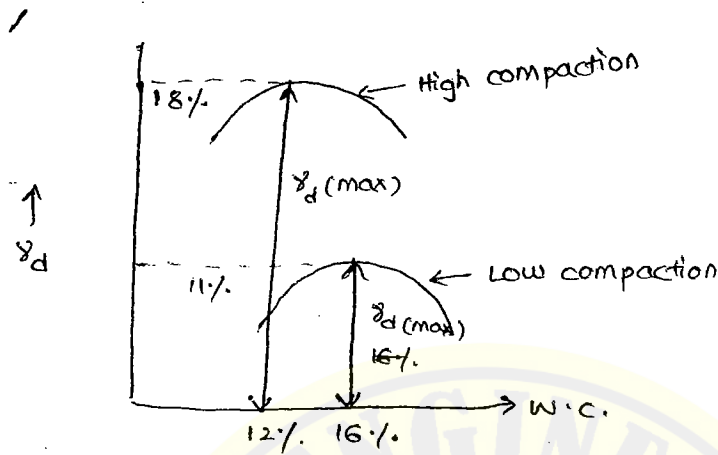 18%
High compaction
γd (max)
↑
γd
11%
Low compaction
γd (max)
16%
W.C.
12% 16%
ENGINE